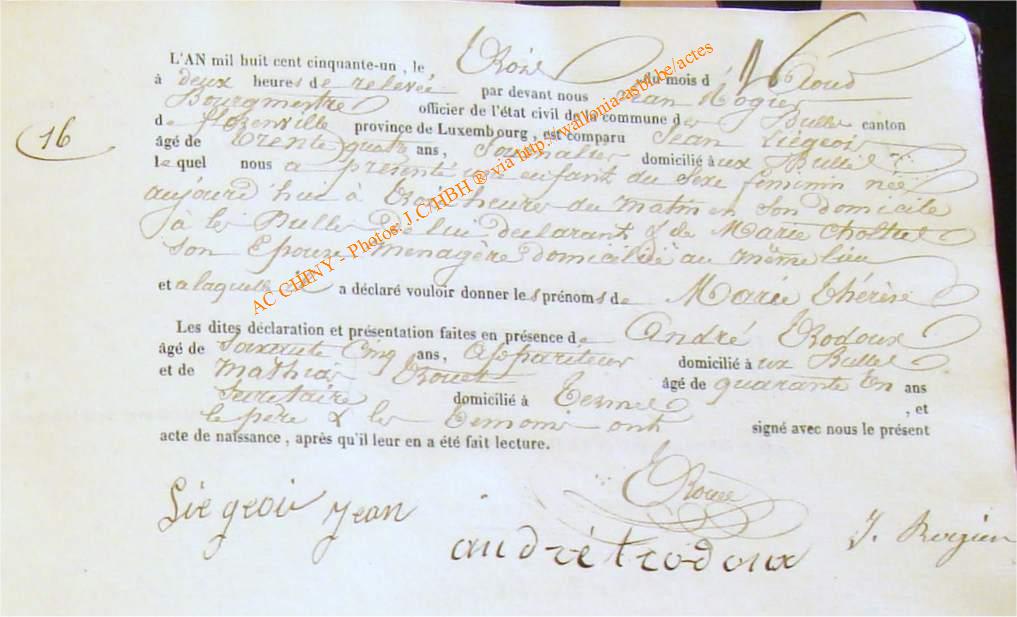 L'AN mil huit cent cinquante-un, le Trois du mois d'Aoud
à deux heures de relevée par devant nous Jean Rogier
Bourgmestre officier de l'état civil de la commune des Bulles canton
de florenville province de Luxembourg, est comparu Jean Liégeois
16
âgé de trente quatre ans, Journalier domicilié à ux Bulles
lequel nous a présenté un enfant du Sexe feminin née
aujourd huc à Trois heures du matin en son domicile
à les Bulles De lui declarant & de Marie
son Epouse menagère domiciliée au même lieu
et a laquelle il a déclaré vouloir donner les prénoms de Marie thérèse
Les dites déclaration et présentation faites en présence de André Trodoux
âgé de Soixante Cinq ans, Appariteur domicilié à ux Bulles
et de Mathias Rouet âgé de quarante En ans
Secretaire domicilié à Termes , et
le père & les Temoins ont signé avec nous le présent
acte de naissance, après qu'il leur en a été fait lecture.
Liegeois Jean
andré trodoux
J. Rogier
AC CHINY - Photos: J.C/HBH ® via http://wallonia-asbl.be/actes